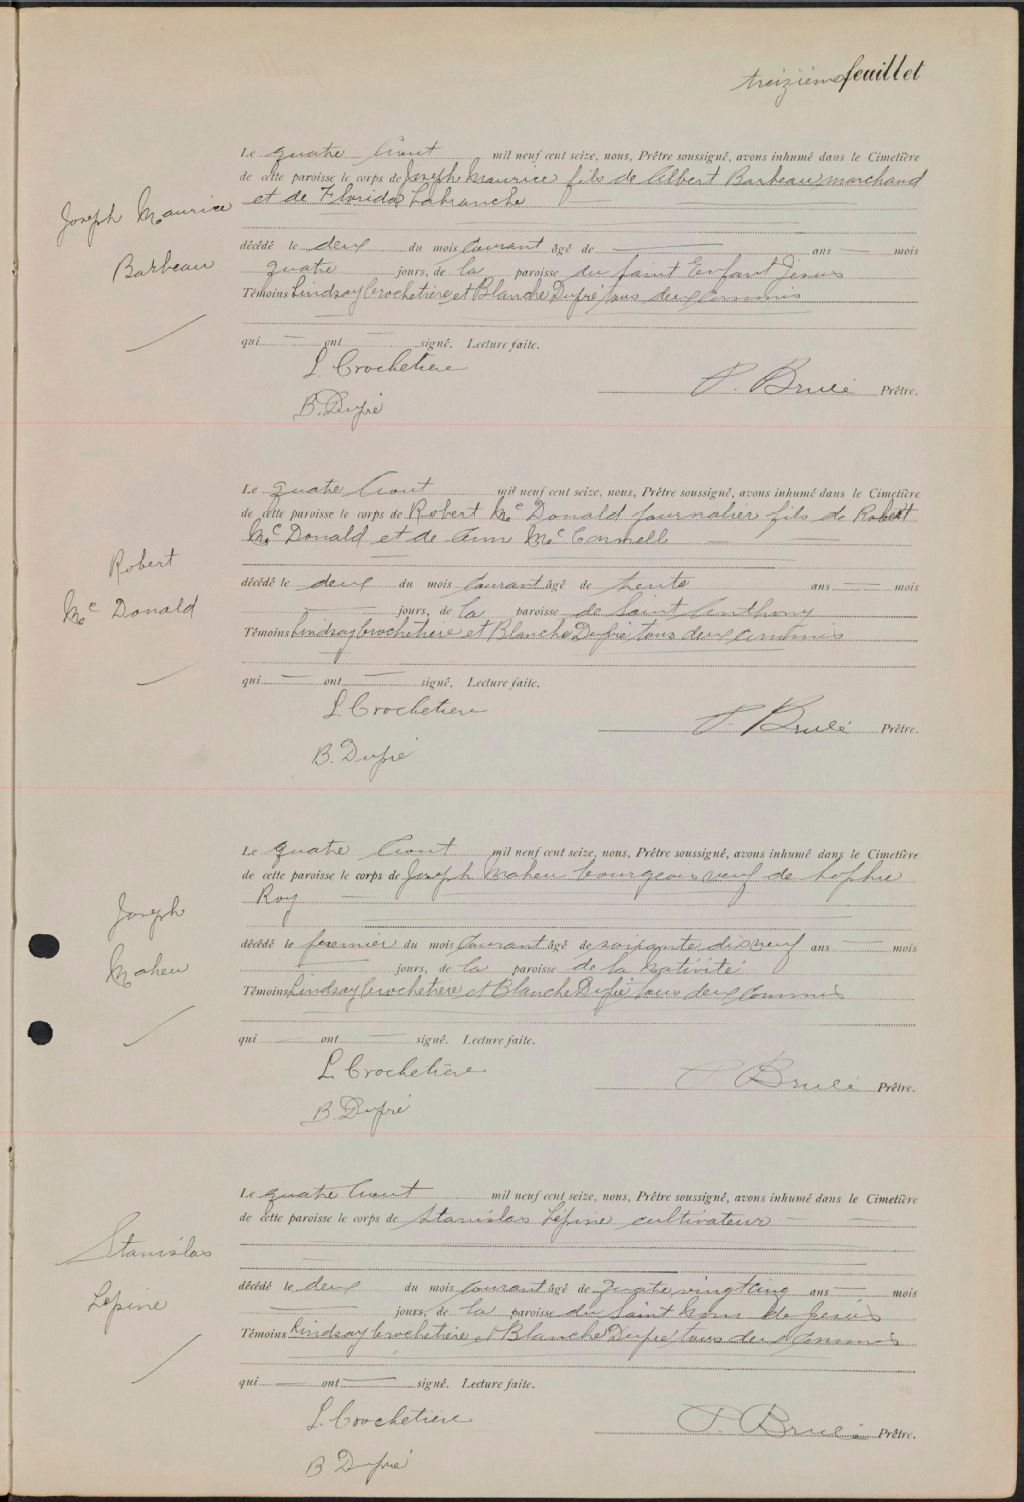 treizième feuillet
Le quatre Aout mil neuf cent seize, nous, Prêtre soussigné, avons inhumé dans le Cimetière
de cette paroisse le corps de Joseph Maurice fils de Albert Barbeau marchand
et de Florida Labranche
Joseph Maurice
Barbeau
décédé le deux du mois courant âgé de ans mois
quatre jours, de la paroisse du Saint Enfant Jésus
Témoins Lindsay Crochetière et Blanche Dufré tous deux commis
qui ont signé. Lecture faite.
L. Crochetière
P. Brulé Prêtre.
B. Dufré
Le quatre Aout mil neuf cent seize, nous, Prêtre soussigné, avons inhumé dans le Cimetière
de cette paroisse le corps de Robert Mc Donald journalier fils de Robert
Mc Donald et de Ann Mc Connell
Robert
Mc Donald
décédé le deux du mois courant âgé de trente ans mois
jours, de la paroisse de Saint Anthony
Témoins Lindsay Crochetière et Blanche Dufré tous deux commis
qui ont signé. Lecture faite.
L. Crochetière
P. Brulé Prêtre.
B. Dufré
Le quatre Aout mil neuf cent seize, nous, Prêtre soussigné, avons inhumé dans le Cimetière
de cette paroisse le corps de Joseph Maheu bourgeois veuf de Sophie
Roy
Joseph
Maheu
décédé le premier du mois courant âgé de soixante dixneuf ans mois
jours, de la paroisse de la Nativité
Témoins Lindsay Crochetière et Blanche Dufré tous deux commis
qui ont signé. Lecture faite.
L. Crochetière
P. Brulé Prêtre.
B. Dufré
Le quatre Aout mil neuf cent seize, nous, Prêtre soussigné, avons inhumé dans le Cimetière
de cette paroisse le corps de Stanislas Lépine cultivateur
Stanislas
Lépine
décédé le deux du mois courant âgé de quatrevingtcinq ans mois
jours, de la paroisse du Saint Nom de Jesús
Témoins Lindsay Crochetière et Blanche Dufré tous deux commis
qui ont signé. Lecture faite.
L. Crochetière
P. Brulé Prêtre.
B. Dufré